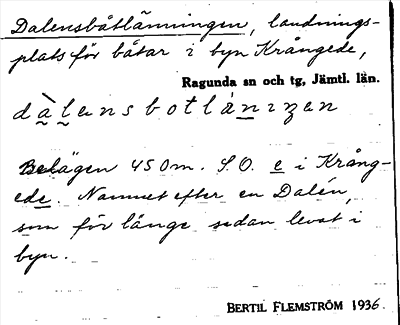 Dalensbåtlänningen, landnings-
plats för båtar i byn Krångede,
Ragunda sn och tg, Jämtl. län.
dàlensbotlániŋen
Belägen 450m. S.O. e i Krång-
ede. Namnet efter en Dalén,
som för länge sedan levat i
byn.
BERTIL FLEMSTRÖM 1936.